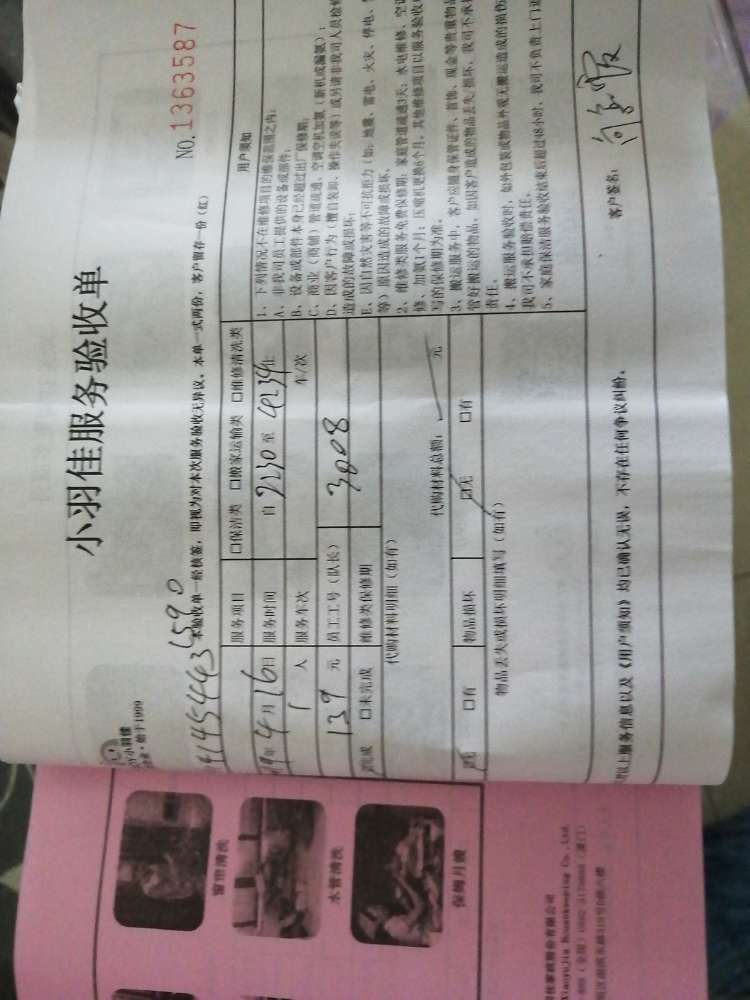 小羽佳服务验收单
NO.1363587
始于1999
本验收单一经核签，即视为对本次服务验收无异议。本单一式两份，客户留存一份（红）
服务项目 □保洁类 □搬家运输类 □维修清洗类
4月16日 服务时间 自 至
1 人 服务车次 车/次
139 元 员工工号（队长） 3008
完成 □未完成 维修类保修期
代购材料明细（如有）
代购材料总额： 元
□有 物品损坏 □无 □有
物品丢失或损坏明细填写（如有）
用户须知
1、下列情况不在维修项目的维保范围之内：
A、非我司员工提供的设备或部件；
B、设备或部件本身已经超过出厂保修期；
C、商业（商铺）管道疏通、空调空机加氨（新机或漏氨）；
D、因客户行为（擅自装卸、操作失误等）或另请非我司人员检修
造成的故障或损坏；
E、因自然灾害等不可抗拒力（如：地震、雷电、火灾、停电、
等）原因造成的故障或损坏。
2、维修类服务免费保修期：家庭管道疏通3天；水电维修、空调
修、加氨1个月；压缩机更换6个月。其他维修项目以服务验收
写的保修期为准。
3、搬运服务中，客户应随身保管证件、首饰、现金等贵重物品
管好搬运的物品，如因客户造成的物品丢失/损坏，我司不承担
责任。
4、搬运服务验收时，如外包装或物品外观无搬运造成的损伤
我司不承担赔偿责任。
5、家庭保洁服务验收结束后超过48小时，我司不负责上门返
以上服务信息以及《用户须知》均已确认无误，不存在任何争议纠纷。
客户签名：
窗帘清洗
水管清洗
保姆月嫂
Xiaoyujia Housekeeping Co.,Ltd.